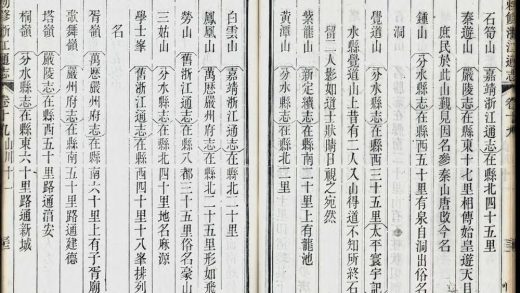 石筍山　嘉靖浙江通志在縣北四十五里
秦遊山　嚴陵志在縣東十七里相傳始皇遊天目
庶民於此山觀見因名參秦山唐改今名
鍾山　分水縣志在縣西五十里有泉自洞出俗名
洞
覺道山　分水縣志在縣西三十五里太平寰宇記
水縣覺道山上昔有二人入山得道不知所終石
留二人影如道士狀晴日視之宛然
紫龍山　新定續志在縣北二十里上有龍池
黃潭山　分水縣志在縣北二里
白雲山　嘉靖浙江通志在縣北二十里
鳳凰山　萬歷嚴州府志在縣北二十里形如飛
勞山　舊浙江通志在縣八都三十五里俗名豪山
三姑山　分水縣志在縣北四十里地名麻源
學士峯　舊浙江通志在縣西四十里十八峯排列
名
胥嶺　萬歷嚴州府志在縣南六十里上有子胥廟
歌舞嶺　萬歷嚴州府志在縣南五十里路通建德
塔嶺　嚴陵志在縣西五十里路通淳安
桐嶺　分水縣志在縣東六十里路通新城
勅修浙江通志　卷十九　山川十一